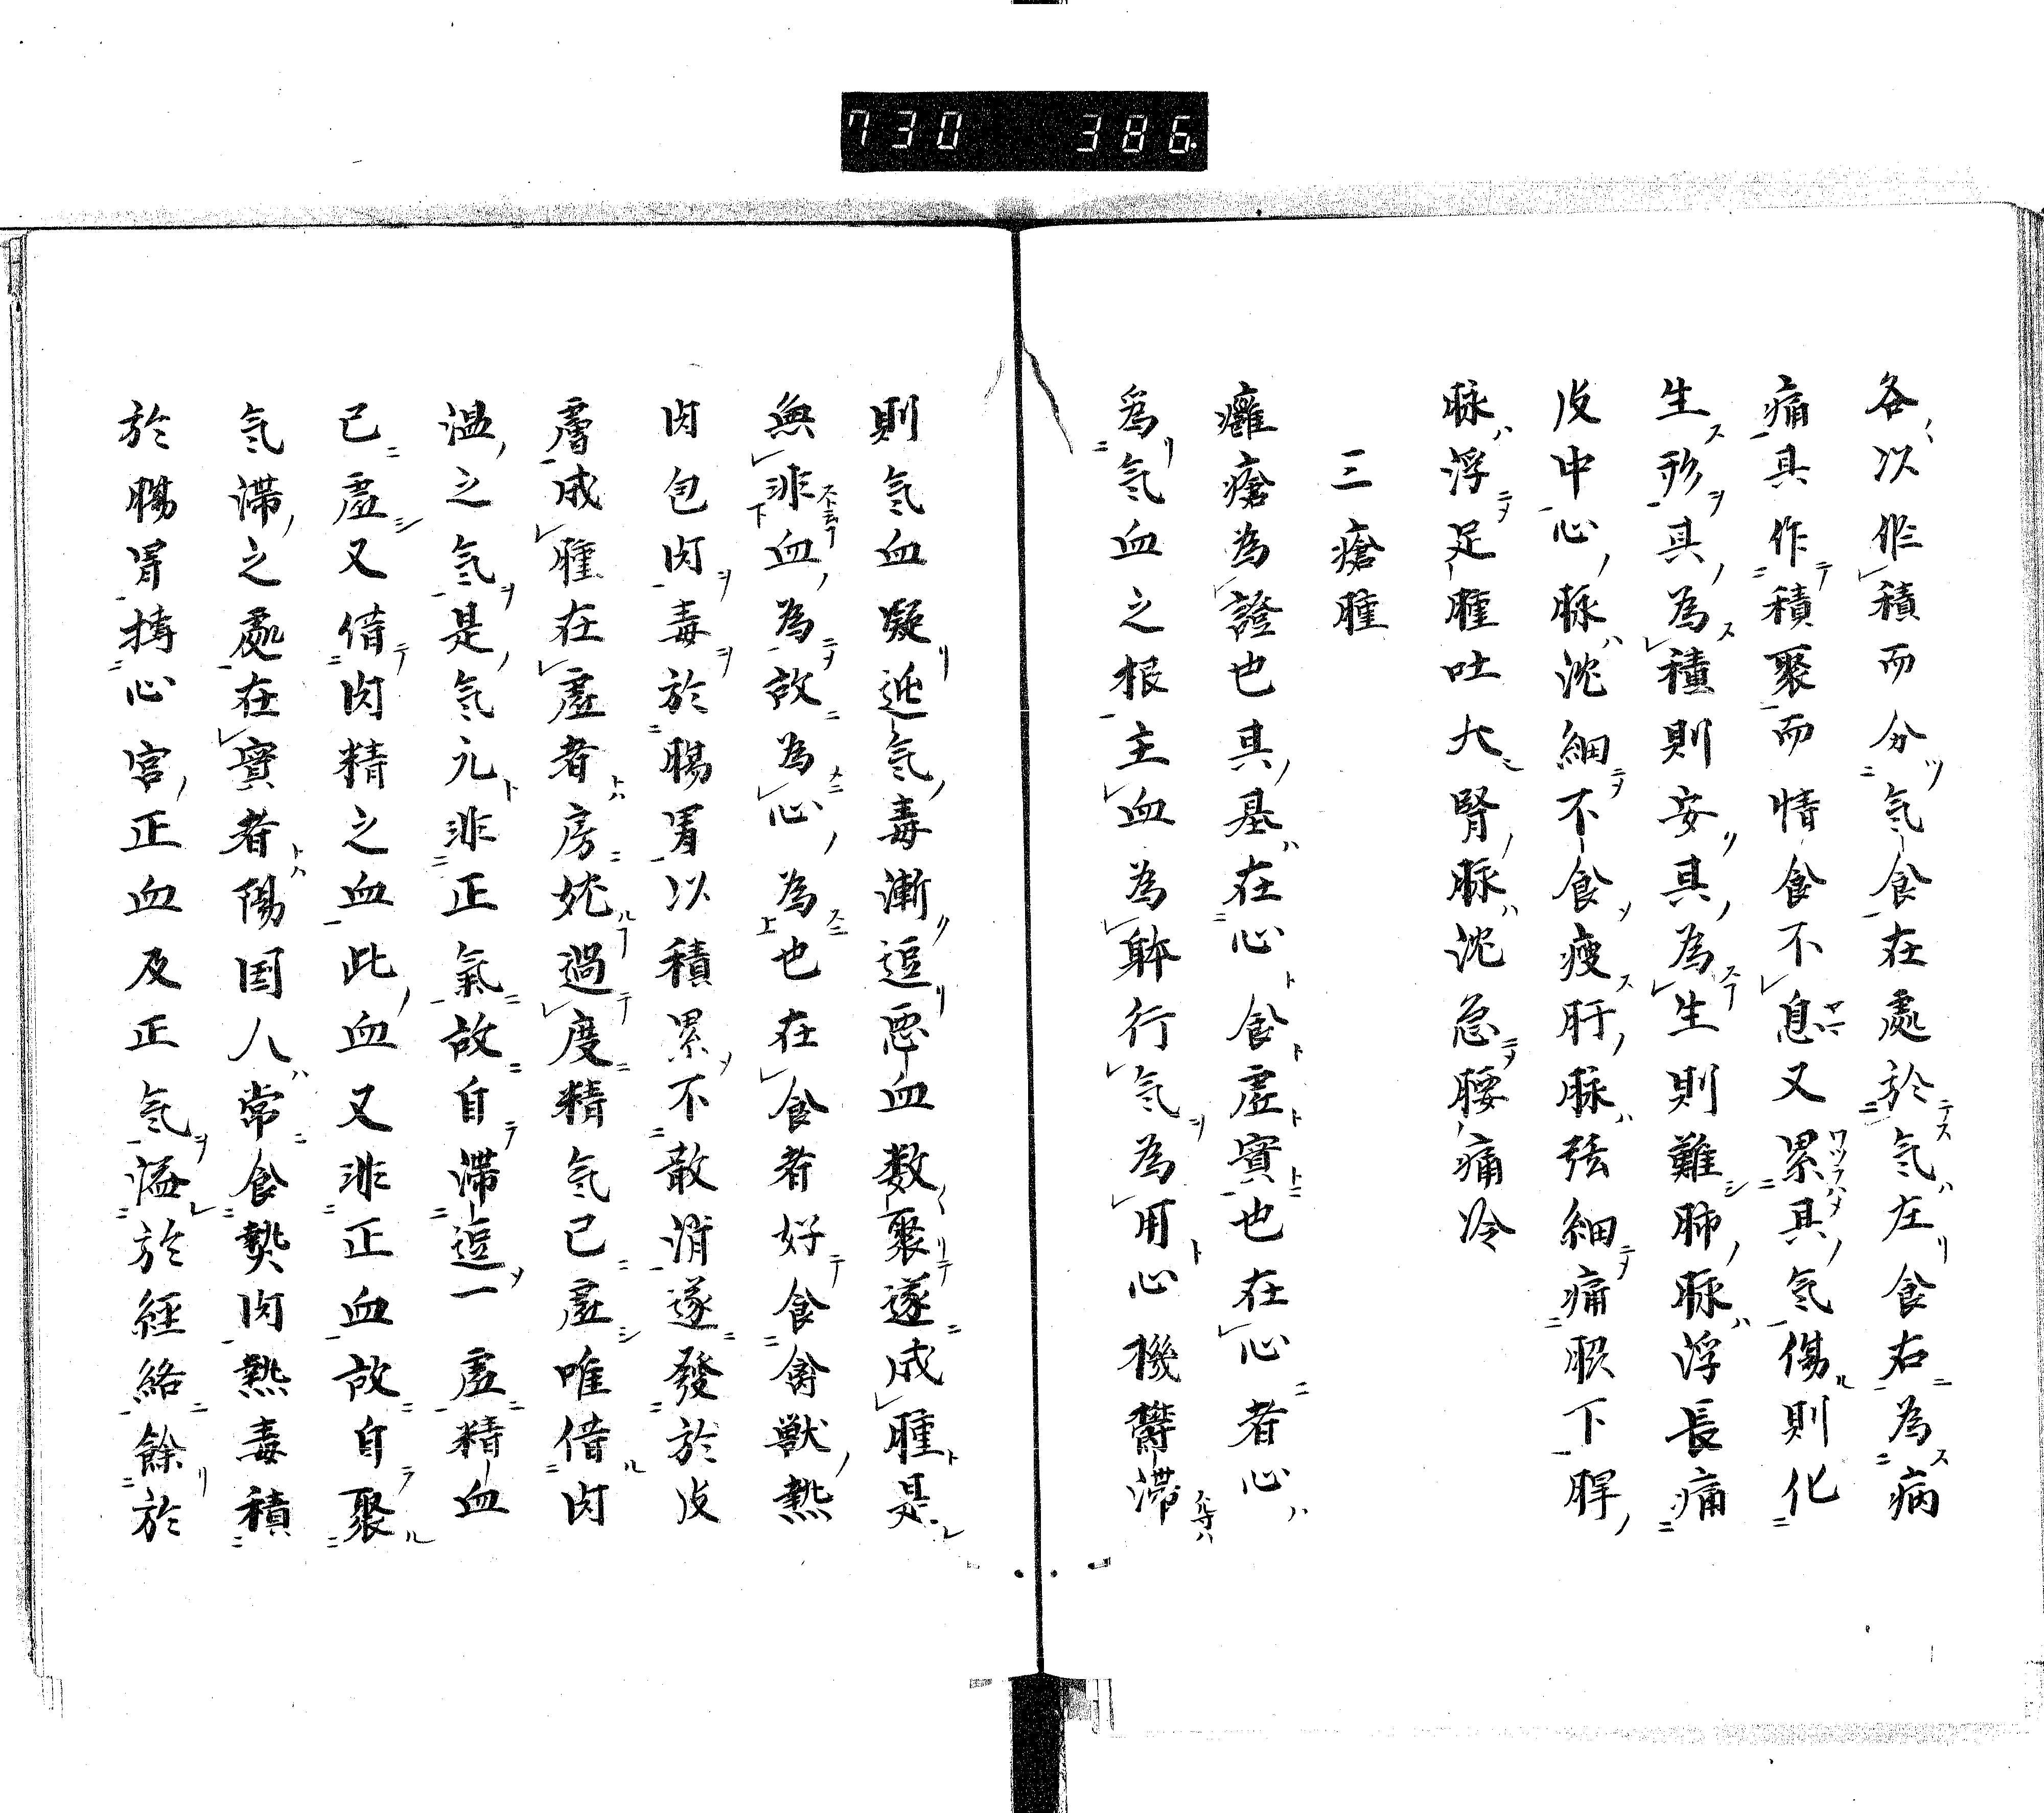 730 386.
各以作積而分气食在處於气左食右為病
痛具作積聚而情食不息又累其气傷則化
生形其為積則安其為生則難肺脉浮長痛
皮中心脉沈細不食瘦肝脉弦細痛脇下脾
脉浮足腫吐大腎脉沈急腰痛冷
三瘡腫
癰瘡為證也其基在心食虛實也在心者心
為气血之根主血為躰行气為用心機欝滞
則气血凝逆气毒漸逗惡血数聚遂成腫是
無非血為故為心為也在食者好食禽獣熱
肉包肉毒於腸胃以積累不散消遂發於皮
膚成腫在虛者房姙過度精气已虛唯借肉
温之气是气元非正氣故自滞逗一虛精血
已虛又借肉精之血此血又非正血故自聚
气滞之處在實者陽国人常食熱肉熱毒積
於腸胃擣心宮正血及正气溢於経絡餘於